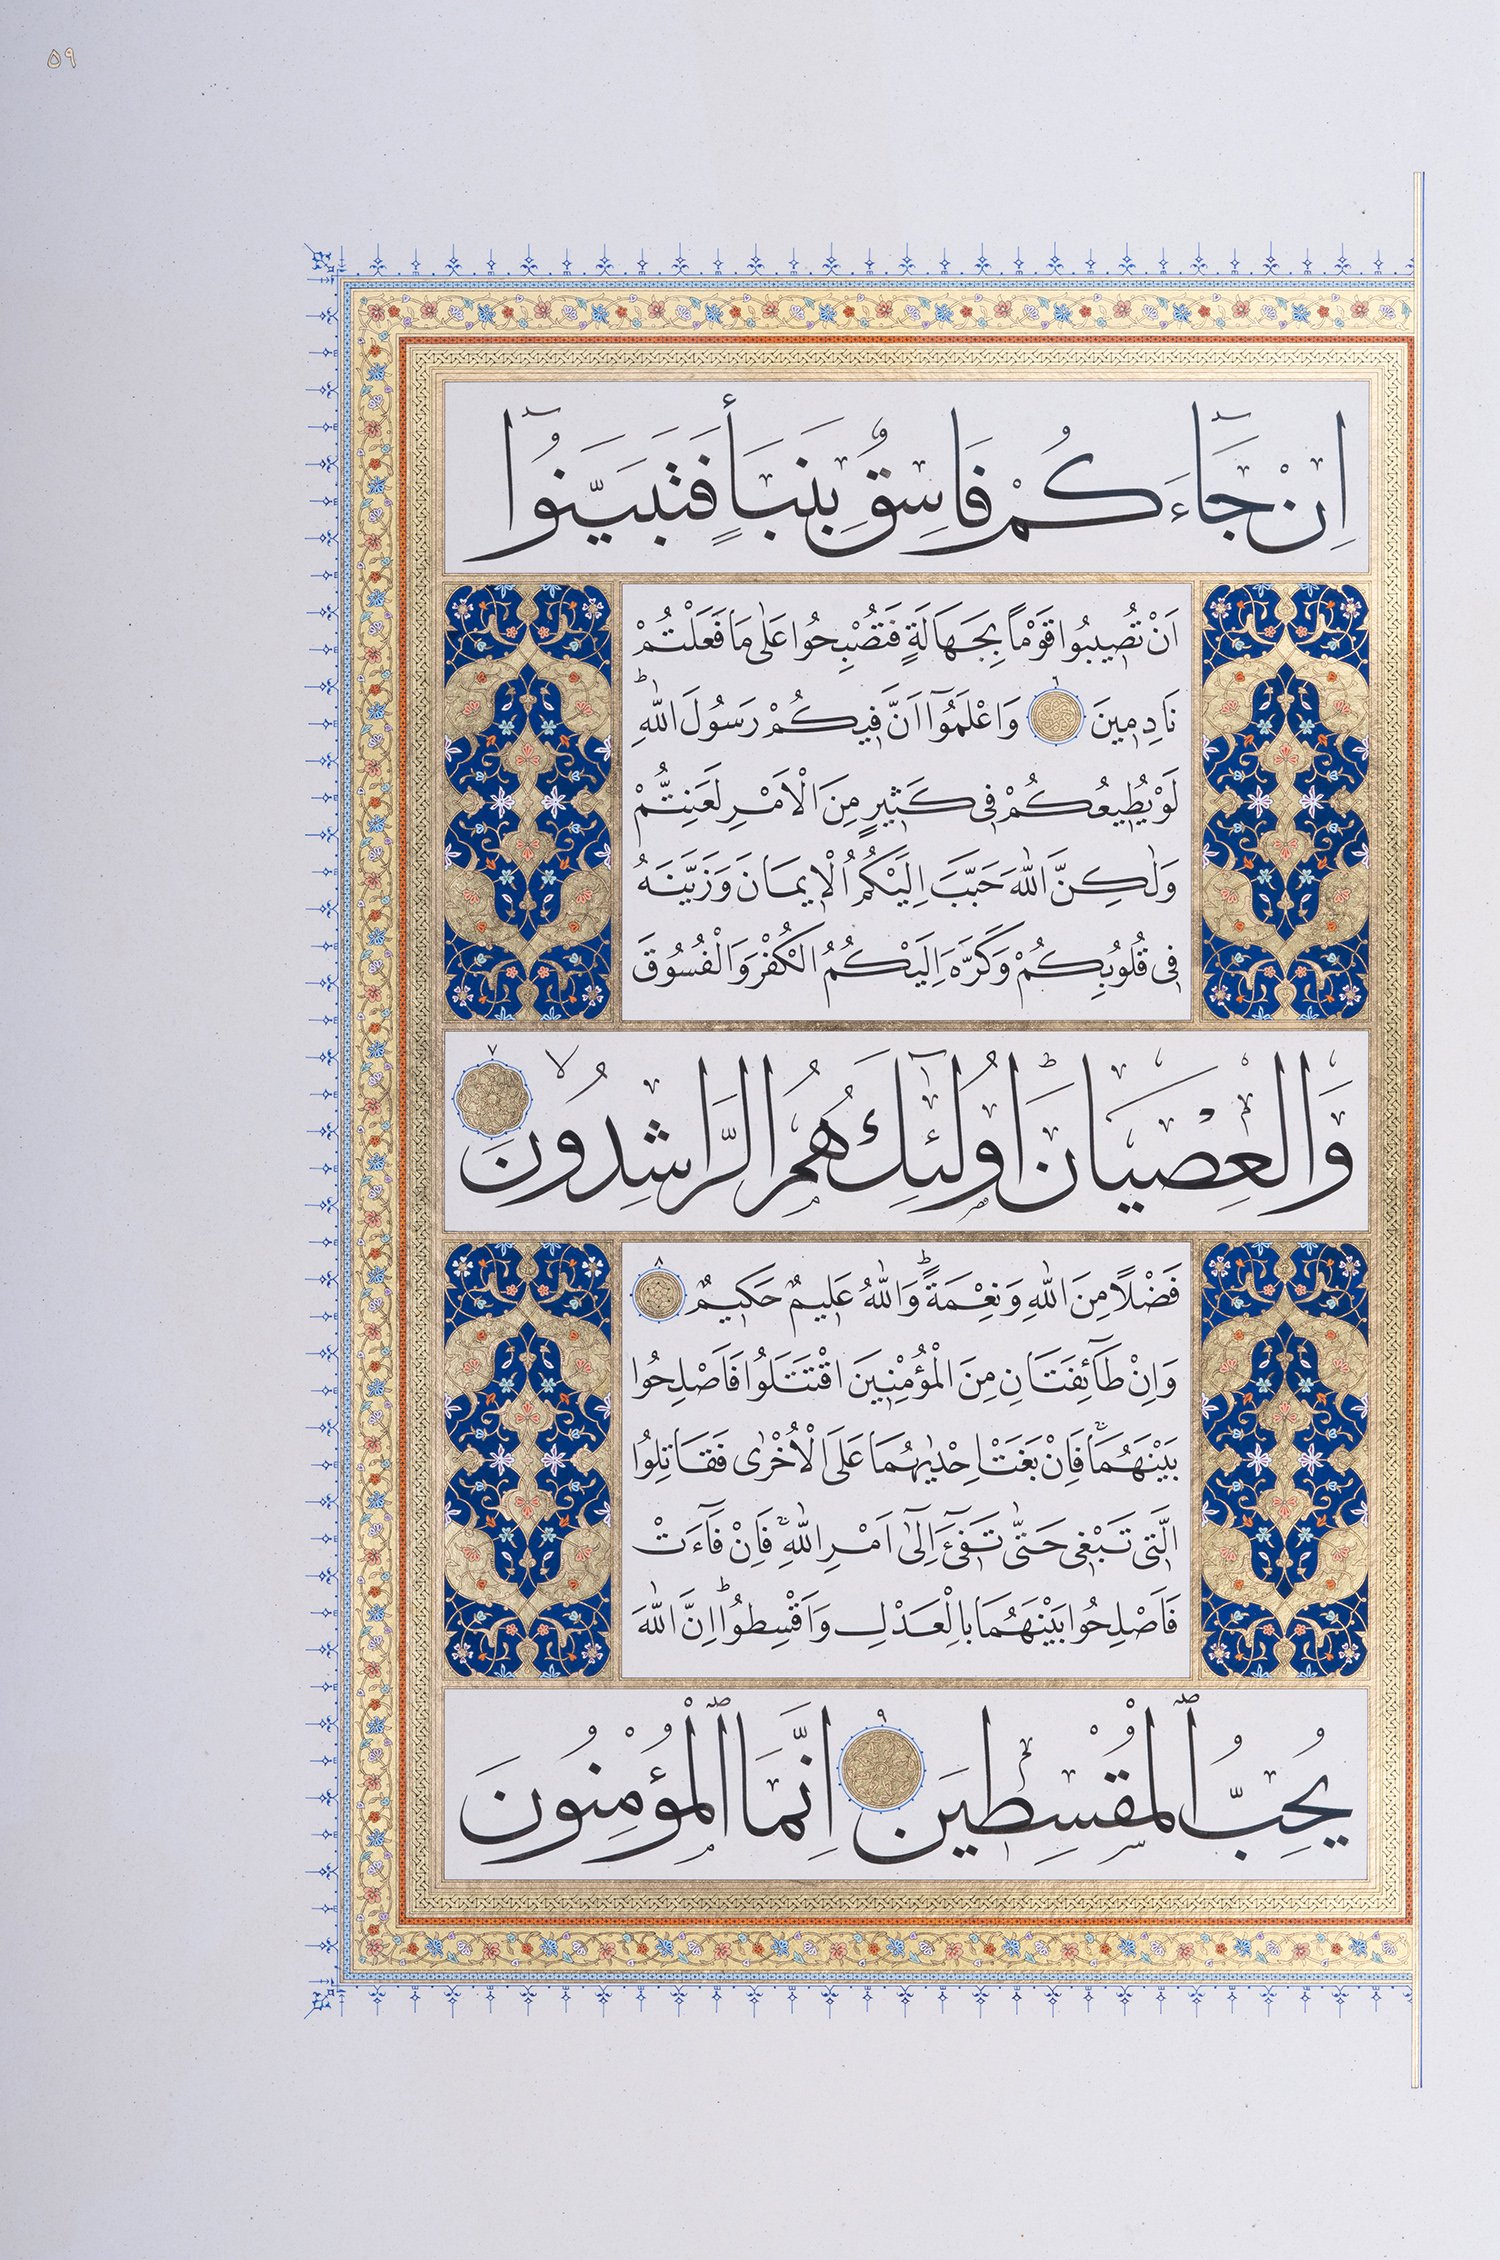 ٥٩
اِنْ جَٓاءَكُمْ فَاسِقٌ بِنَبَأٍ فَتَبَيَّنُٓوا
اَنْ تُصٖيبُوا قَوْماً بِجَهَالَةٍ فَتُصْبِحُوا عَلٰى مَا فَعَلْتُمْ
نَادِمٖينَ ٦ وَاعْلَمُٓوا اَنَّ فٖيكُمْ رَسُولَ اللّٰهِؕ
لَوْ يُطٖيعُكُمْ فٖى كَثٖيرٍ مِنَ الْاَمْرِ لَعَنِتُّمْ
وَلٰكِنَّ اللّٰهَ حَبَّبَ اِلَيْكُمُ الْاٖيمَانَ وَزَيَّنَهُ
فٖى قُلُوبِكُمْ وَكَرَّهَ اِلَيْكُمُ الْكُفْرَ وَالْفُسُوقَ
وَالْعِصْيَانَؕ اُو۬لٰٓئِكَ هُمُ الرَّاشِدُونَۙ ٧
فَضْلاً مِنَ اللّٰهِ وَنِعْمَةًؕ وَاللّٰهُ عَلٖيمٌ حَكٖيمٌ ٨
وَاِنْ طَٓائِفَتَانِ مِنَ الْمُؤْمِنٖينَ اقْتَتَلُوا فَاَصْلِحُوا
بَيْنَهُمَاۚ فَاِنْ بَغَتْ اِحْدٰيهُمَا عَلَى الْاُخْرٰى فَقَاتِلُوا
الَّتٖى تَبْغٖى حَتّٰى تَفٖٓىءَ اِلٰٓى اَمْرِ اللّٰهِۚ فَاِنْ فَٓاءَتْ
فَاَصْلِحُوا بَيْنَهُمَا بِالْعَدْلِ وَاَقْسِطُواؕ اِنَّ اللّٰهَ
يُحِبُّ ٱلْمُقْسِطٖينَ ٩ اِنَّمَا ٱلْمُؤْمِنُونَ